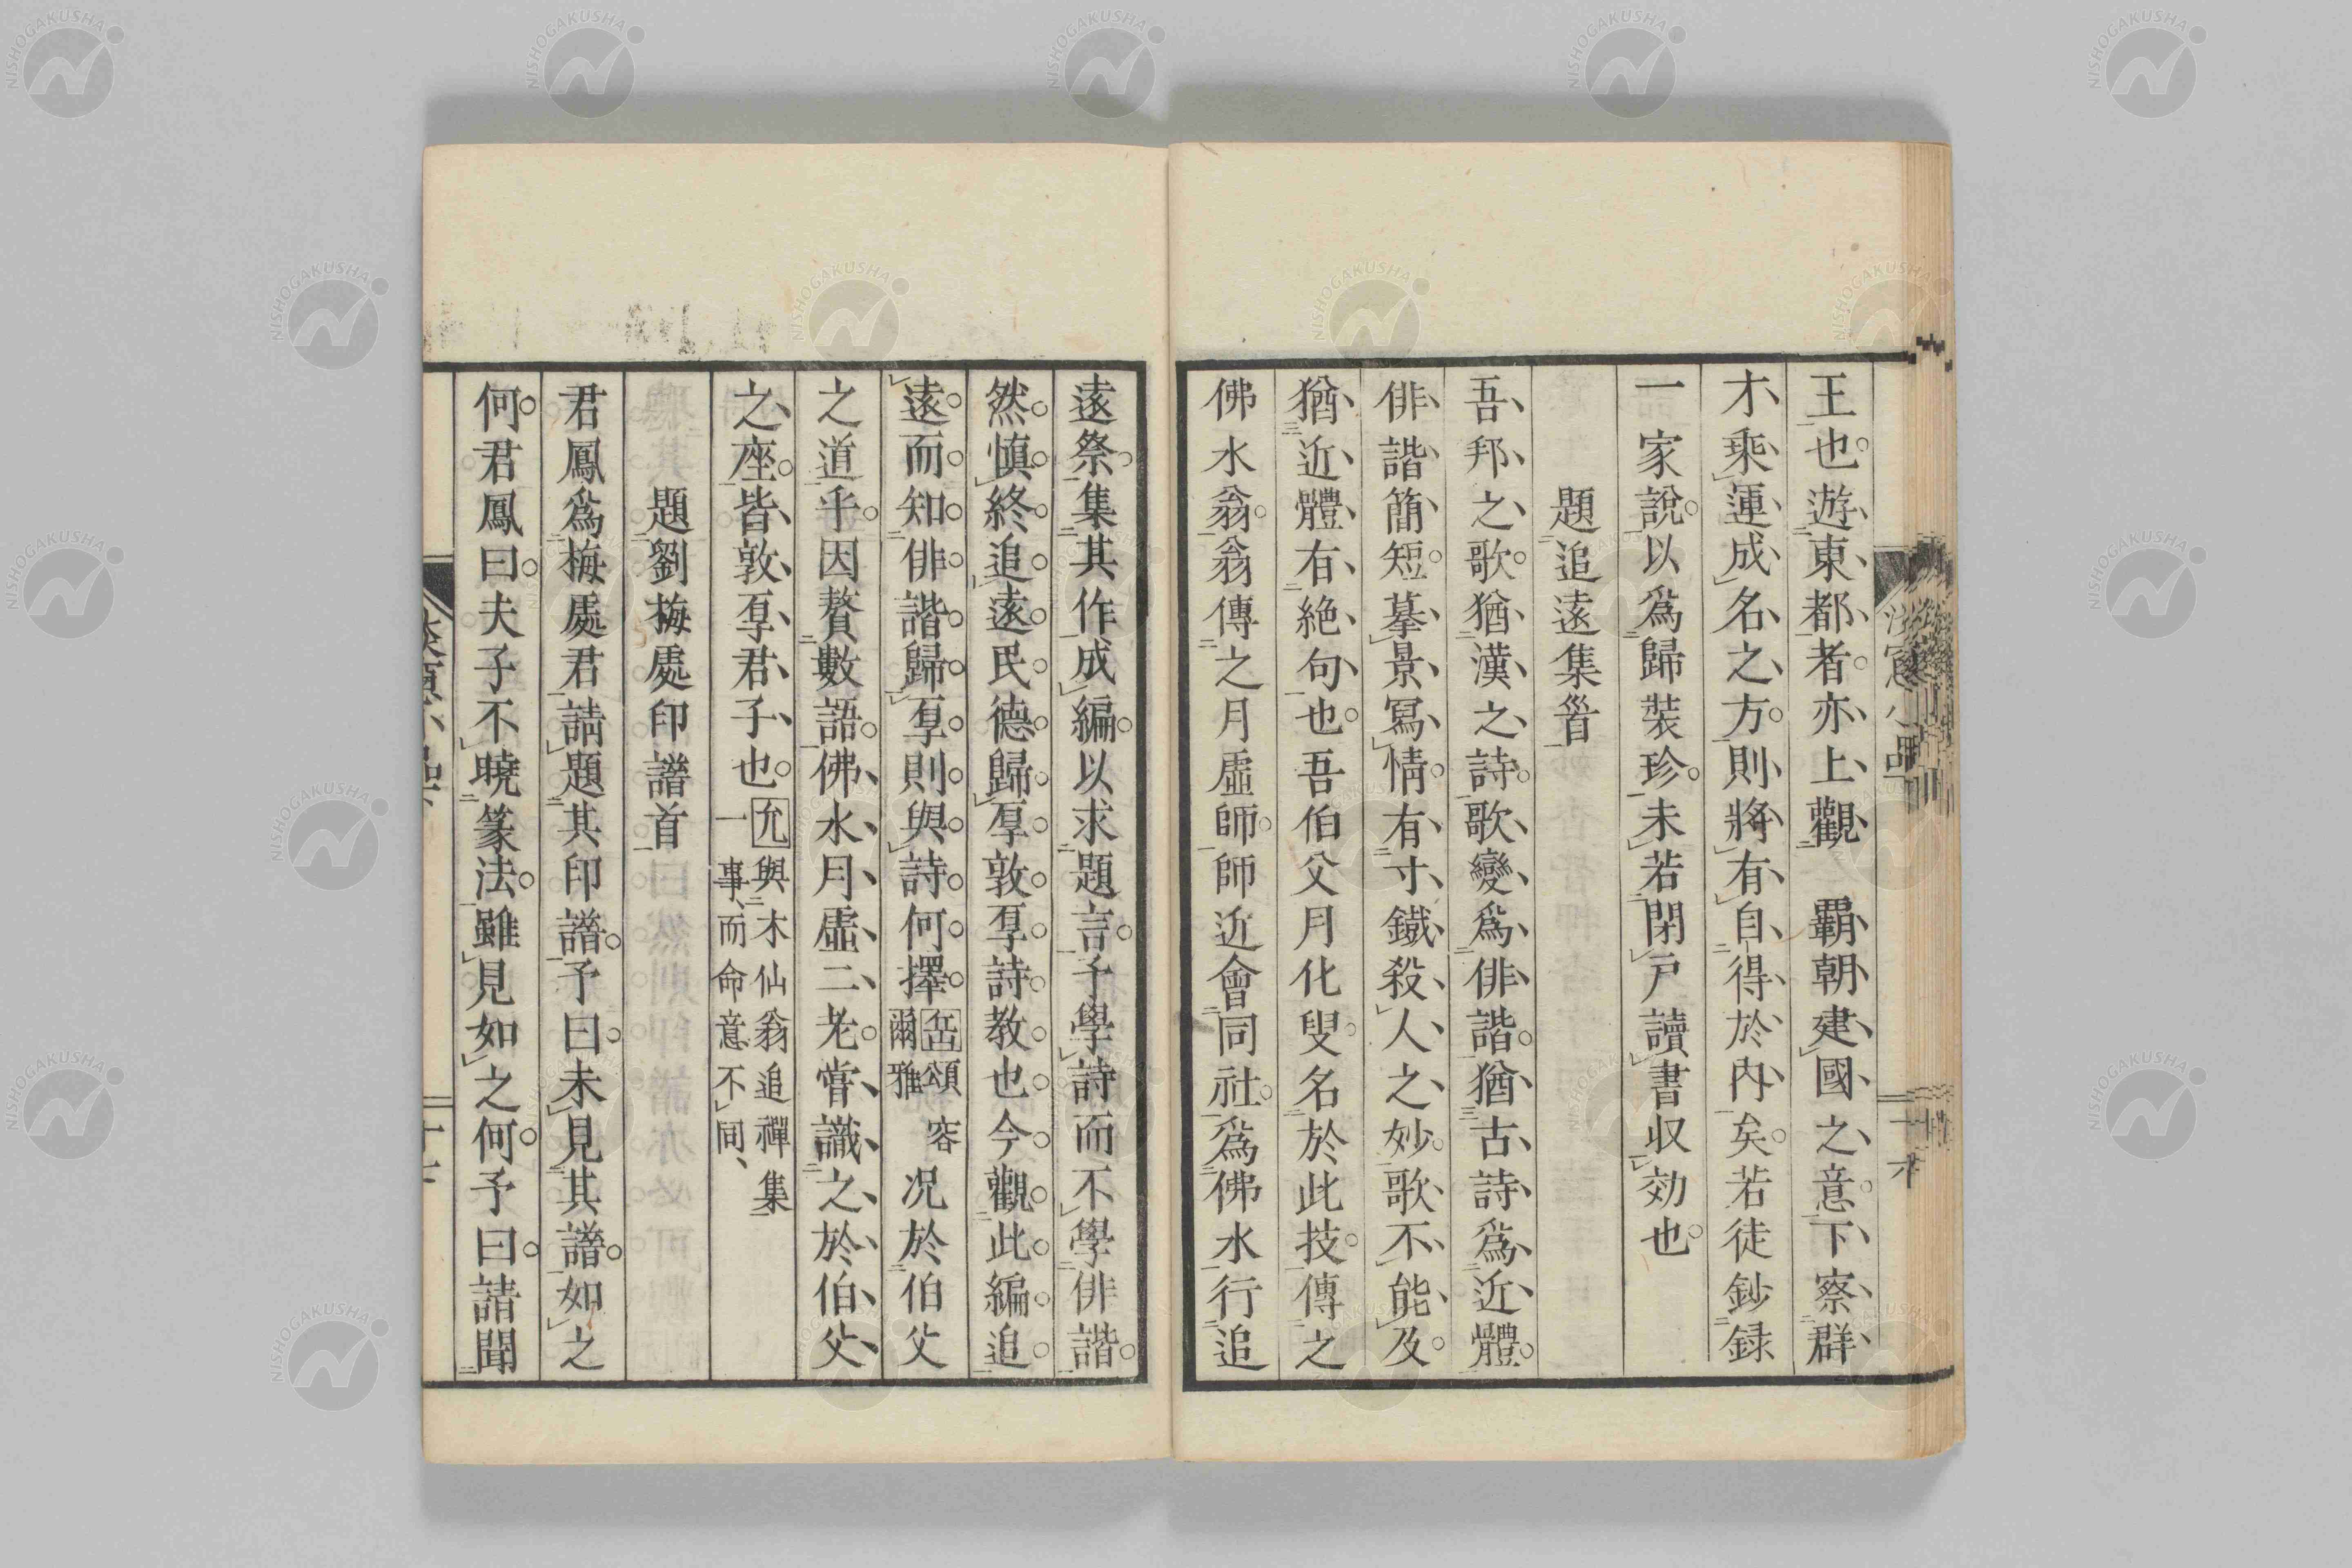 王也遊東都者亦上觀　覇朝建國之意下察群
木乘運成名之方則將有自得於内矣若徒鈔録
一家說以爲歸裝珍未若閉戸讀書収効也
題追遠集首
吾邦之歌猶漢之詩歌變爲俳諧猶古詩爲近體
俳諧簡短摹景寫情有寸鐵殺人之妙歌不能及
猶近體有絶句也吾伯父月化叟名於此技傳之
佛水翁翁傳之月虛師師近會同社爲佛水行追
遠祭集其作成編以求題言予學詩而不學俳諧
然愼終追遠民德歸厚敦厚詩教也今觀此編追
遠而知俳諧歸厚則與詩何擇
頌容
爾雅
况於伯父
之道乎因贅數語佛水月虛二老嘗識之於伯父
之座皆敦厚君子也
允與木仙翁追禪集
一事而命意不同
題劉梅處印譜首
君鳳爲梅處君請題其印譜予曰未見其譜如之
何君鳳曰夫子不曉篆法雖見如之何予曰請聞
NISHOGAKUSHA